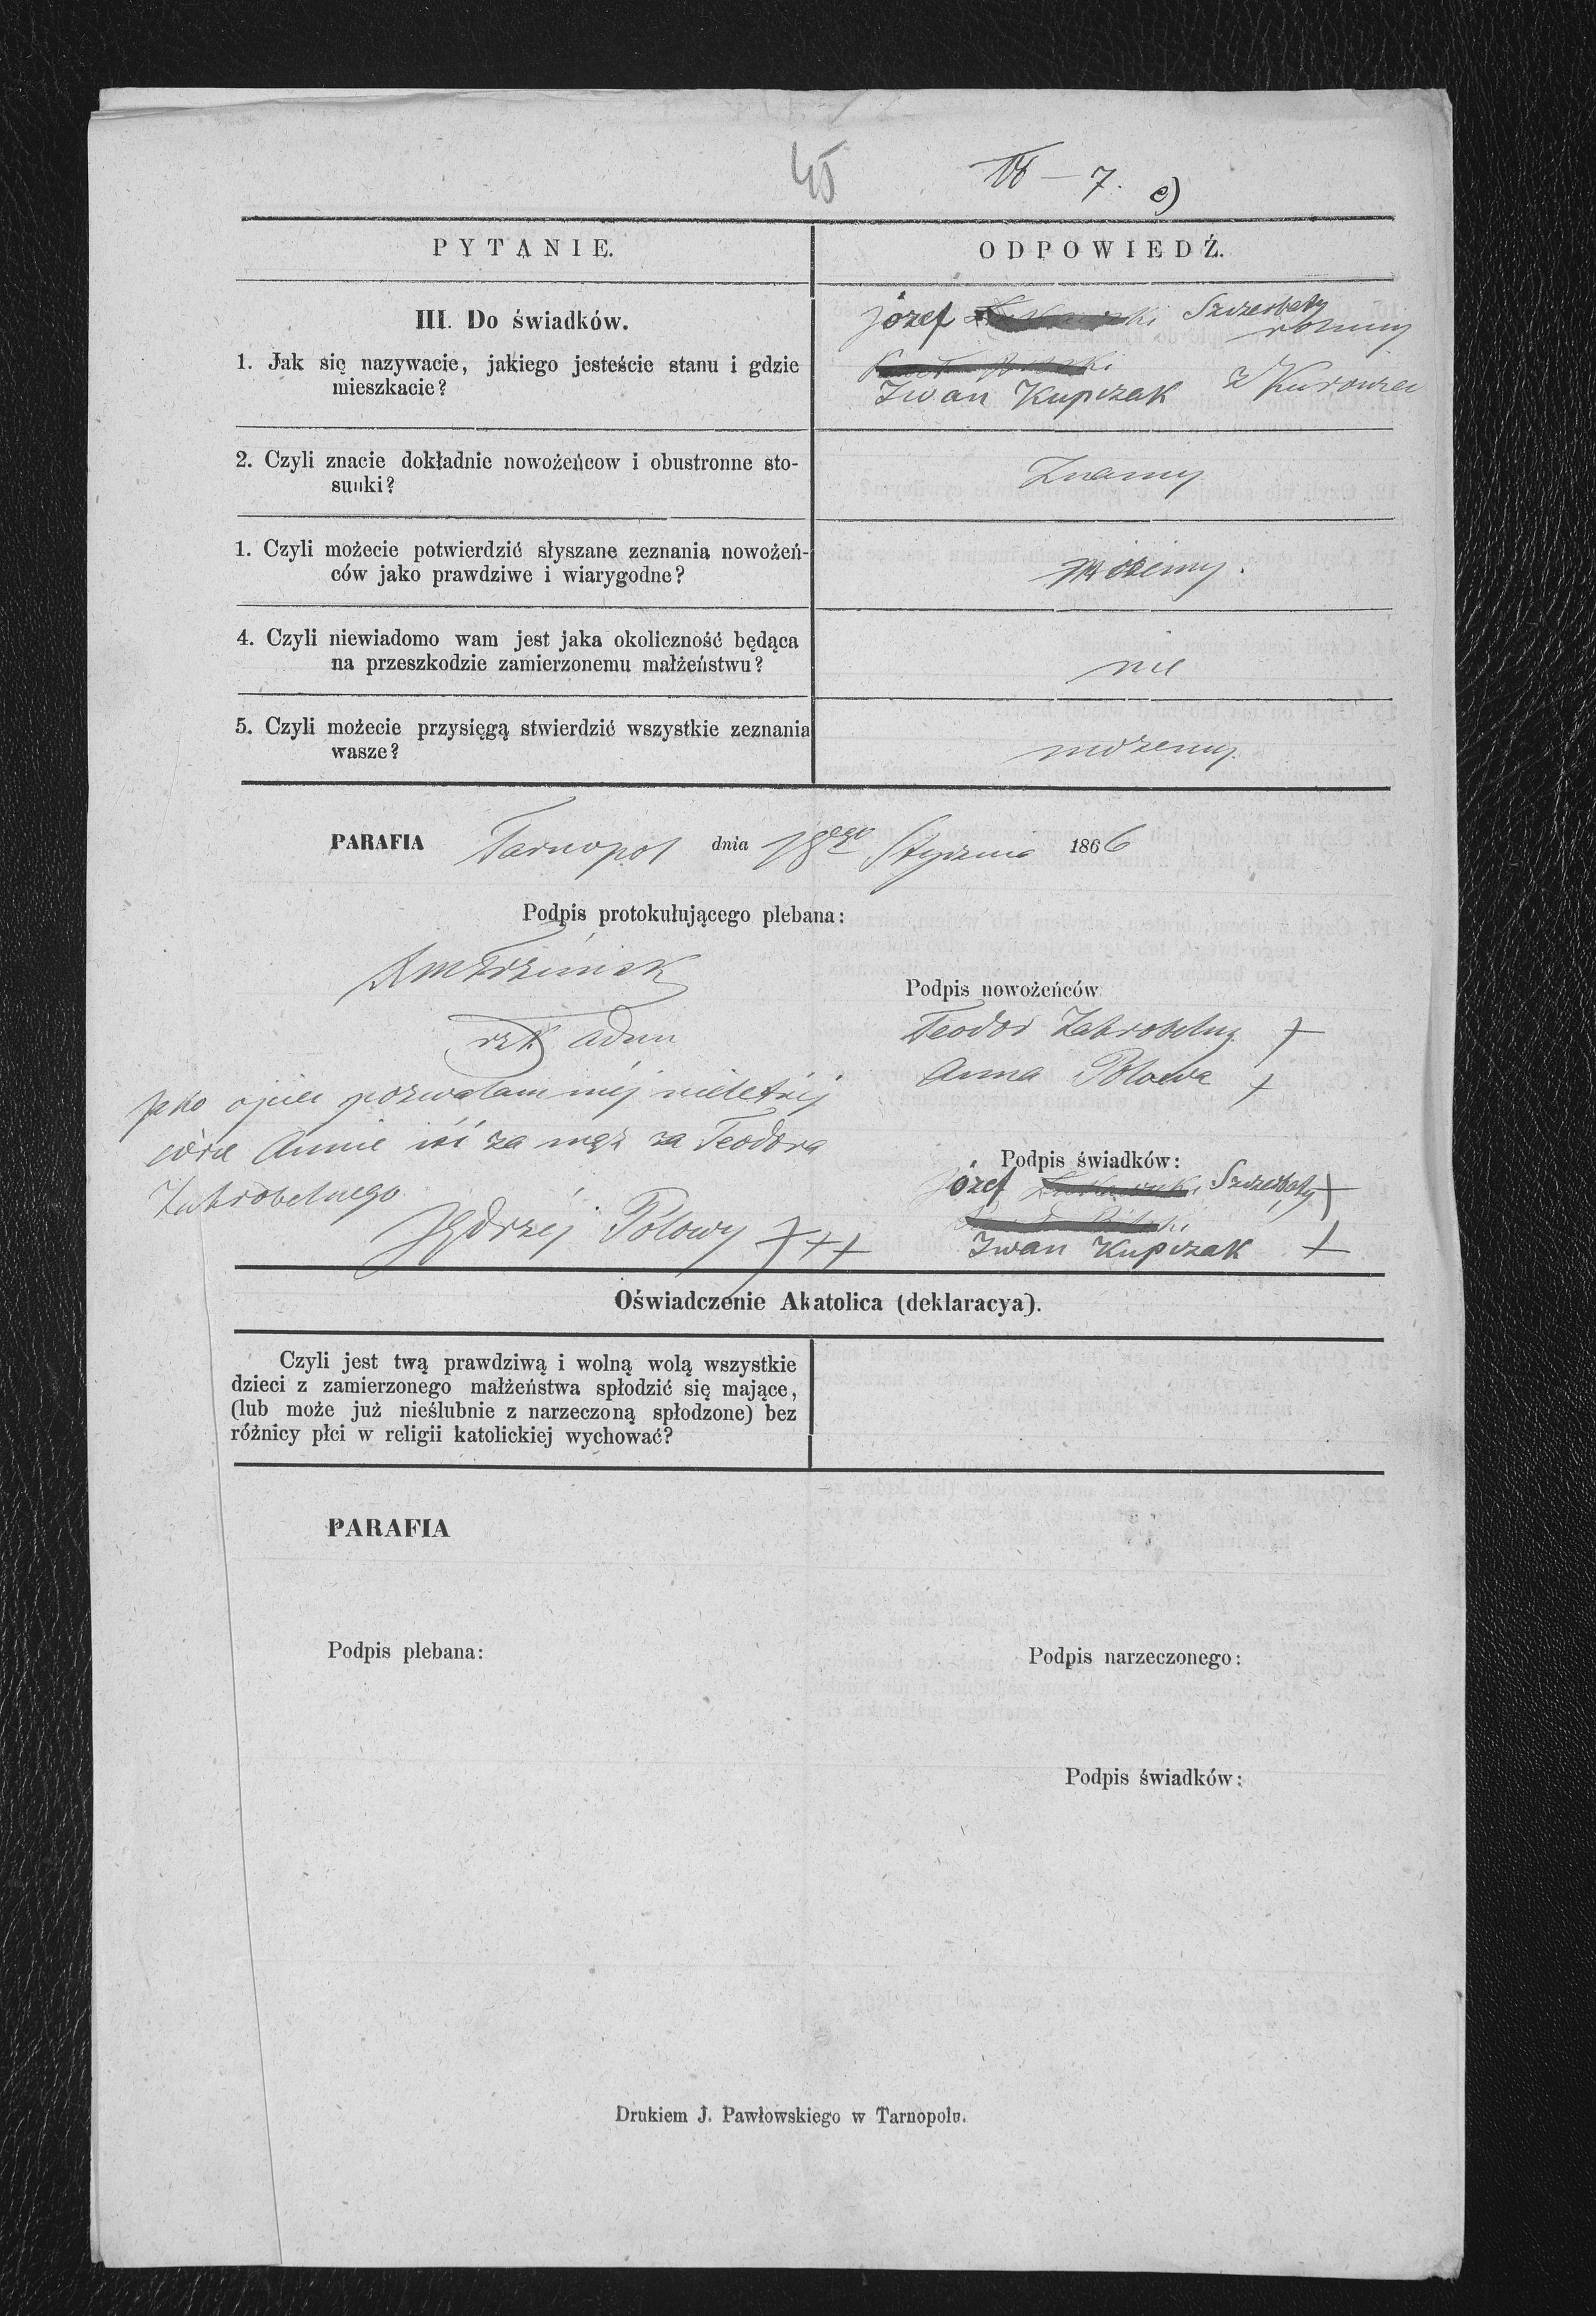 45
18 – 7. e)
PYTANIE.
ODPOWIEDŹ.
III. Do świadków.
1. Jak się nazywacie, jakiego jesteście stanu i gdzie
mieszkacie?
Józef Szczerbaty
Iwan Kupczak z Kurowiec
2. Czyli znacie dokładnie nowożeńcow i obustronne sto-
sunki?
Znamy
1. Czyli możecie potwierdzić słyszane zeznania nowożeń-
ców jako prawdziwe i wiarygodne?
możemy.
4. Czyli niewiadomo wam jest jaka okoliczność będąca
na przeszkodzie zamierzonemu małżeństwu?
nie
5. Czyli możecie przysięgą stwierdzić wszystkie zeznania
wasze?
możemy.
PARAFIA Tarnopol dnia 18ego Stycznia 1866
Podpis protokułującego plebana:
Podpis nowożeńców
Teodor Zahrobelny +
Anna Polowa +
Jako ojciec pozwalam mej nieletniej
córce Annie iść za mąż za Teodora
Zahrobelnego
Jędrzéj Polowy +++
Podpis świadków:
Józef Szczerbaty +
Iwan Kupczak +
Oświadczenie Akatolica (deklaracya).
Czyli jest twą prawdziwą i wolną wolą wszystkie
dzieci z zamierzonego małżeństwa spłodzić się mające,
(lub może już nieślubnie z narzeczoną spłodzone) bez
różnicy płci w religii katolickiej wychować?
PARAFIA
Podpis plebana:
Podpis narzeczonego:
Podpis świadków:
Drukiem J. Pawłowskiego w Tarnopolu.